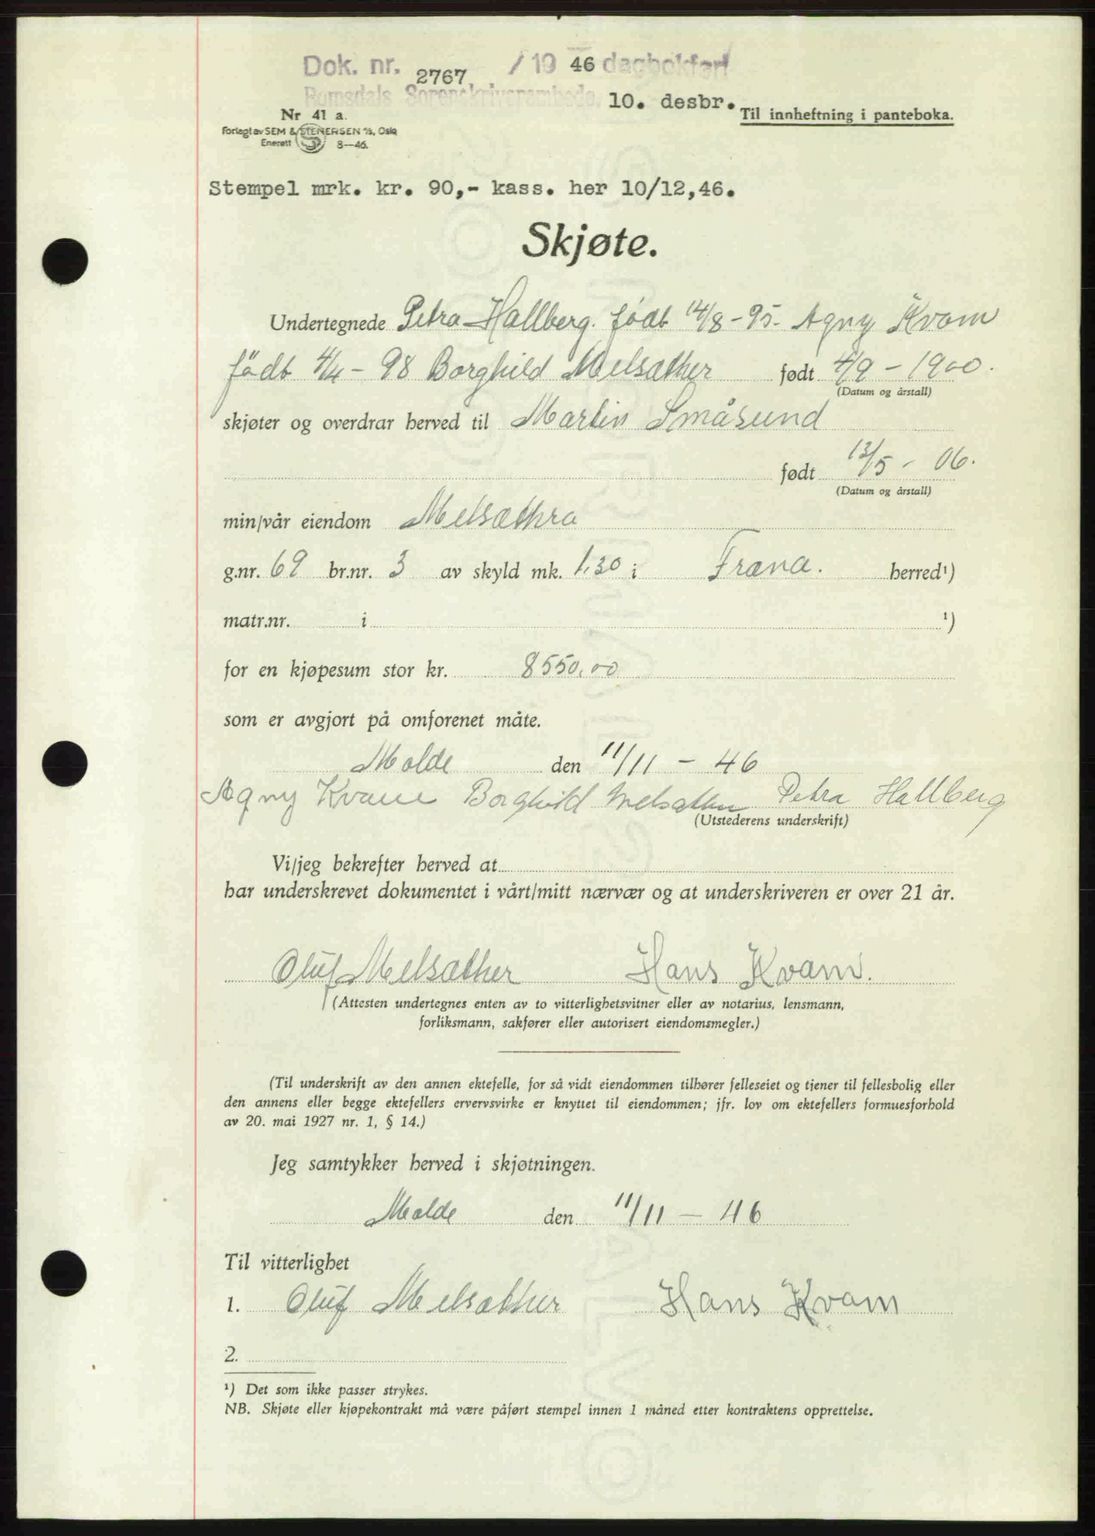 Dok. nr. 2767 / 19 46 dagbokført
Romsdals Sorenskriverembede. 10. desbr.
Til innheftning i panteboka.
Nr 41 a.
Forlagt av SEM & STENERSEN A/S, Oslo
Enerett 8—46.
Stempel mrk. kr. 90,- kass. her 10/12,46.
Skjøte.
Undertegnede Petra Hallberg. født 14/8-95- Agny Kvam
født 4/4-98 Borghild Melsæther født 4/9-1900.
(Datum og årstall)
skjøter og overdrar herved til Martin Småsund
født 12/5-06.
(Datum og årstall)
min/vår eiendom Melsæthra
g.nr. 69 br.nr. 3 av skyld mk. 1,30 i Fræna. herred¹)
matr.nr. i ¹)
for en kjøpesum stor kr. 8550,00
som er avgjort på omforenet måte.
Molde den 11/11-46
Agny Kvam Borghild Melsæther Petra Hallberg
(Utstederens underskrift)
Vi/jeg bekrefter herved at
har underskrevet dokumentet i vårt/mitt nærvær og at underskriveren er over 21 år.
Oluf Melsæther Hans Kvam.
(Attesten undertegnes enten av to vitterlighetsvitner eller av notarius, lensmann,
forliksmann, sakfører eller autorisert eiendomsmegler.)
(Til underskrift av den annen ektefelle, for så vidt eiendommen tilhører felleseiet og tjener til fellesbolig eller
den annens eller begge ektefellers ervervsvirke er knyttet til eiendommen; jfr. lov om ektefellers formuesforhold
av 20. mai 1927 nr. 1, § 14.)
Jeg samtykker herved i skjøtningen.
Molde den 11/11-46
Til vitterlighet
1. Oluf Melsæther Hans Kvam
2.
¹) Det som ikke passer strykes.
NB. Skjøte eller kjøpekontrakt må være påført stempel innen 1 måned etter kontraktens opprettelse.